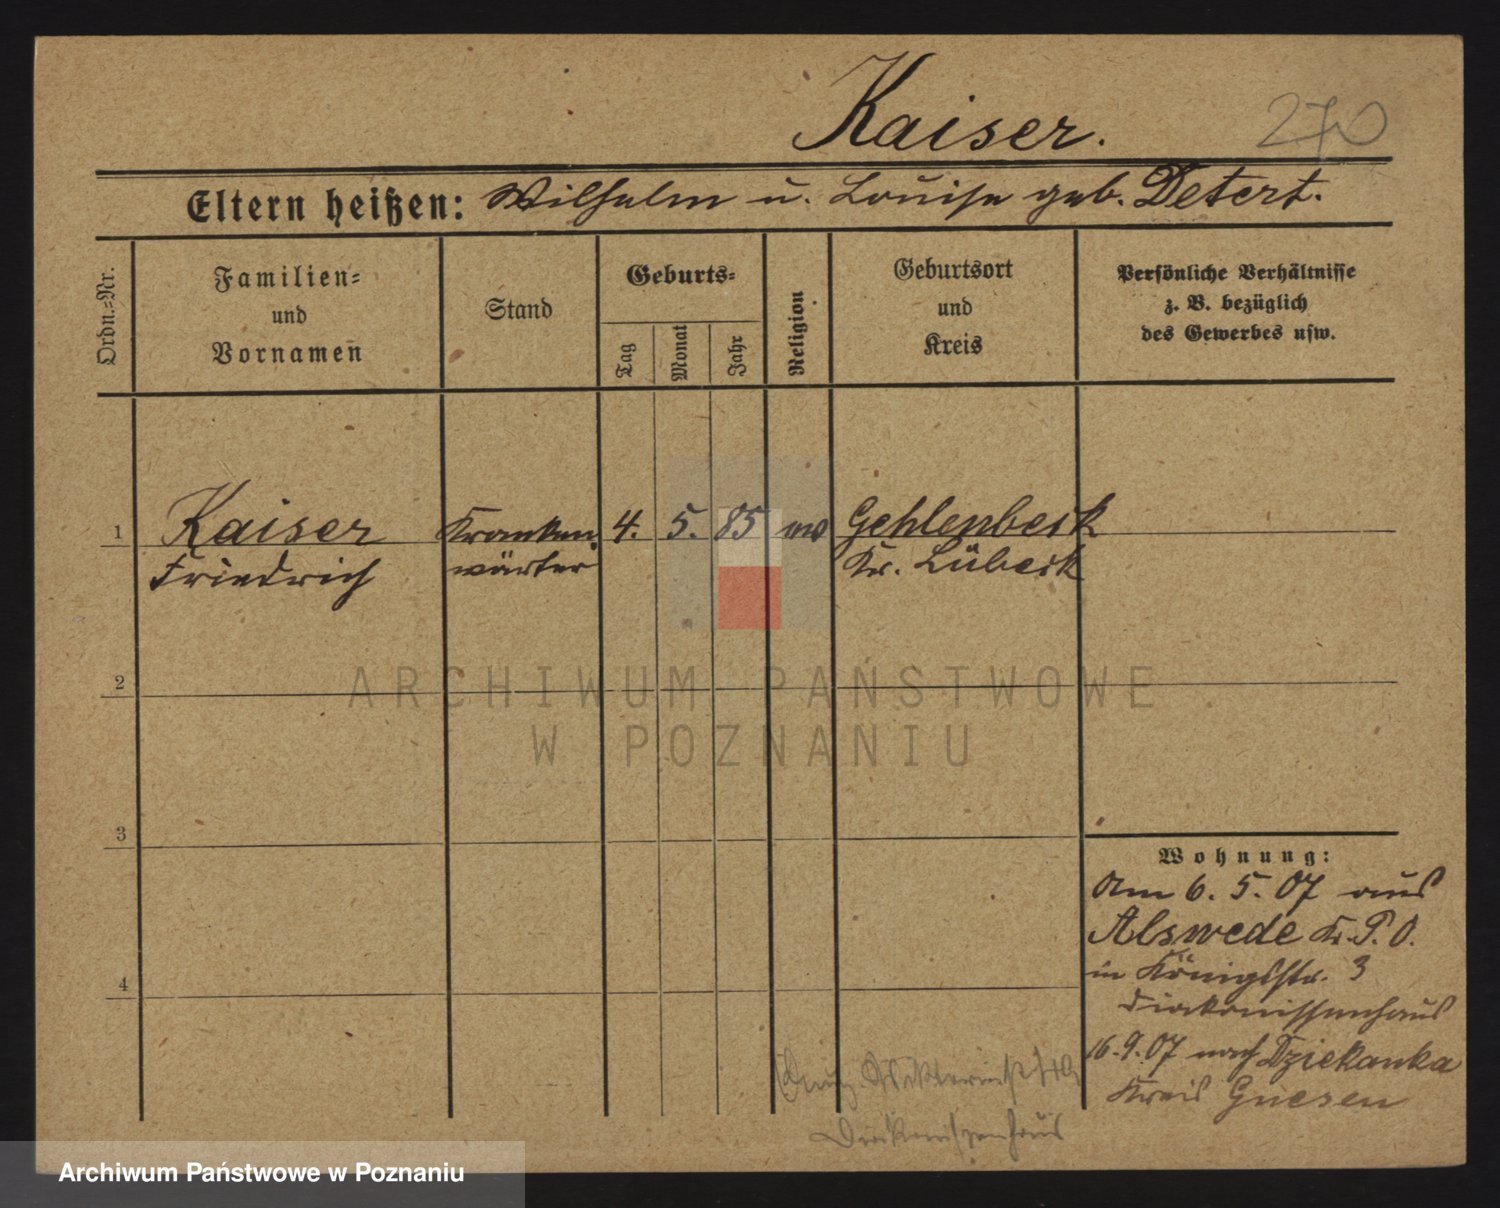 Kaiser.
270
Eltern heißen: Wilhelm u. Louise geb. Detert.
Ordn.-Nr.
Familien-
und
Vornamen
Stand
Geburts-
Tag
Monat
Jahr
Religion
Geburtsort
und
Kreis
Persönliche Verhältnisse
z. B. bezüglich
des Gewerbes usw.
1
Kaiser
Friedrich
Kranken-
wärter
4. 5. 85 ev
Gehlenbeck
Kr. Lübeck
2
ARCHIWUM PAŃSTWOWE
W POZNANIU
3
4
Wohnung:
Am 6. 5. 07 aus
Alswede Kr. P. O.
in Königsstr. 3
Diakonissenhaus
16.9.07 nach Dziekanka
Kreis Gnesen
Diakonissenhaus
Archiwum Państwowe w Poznaniu